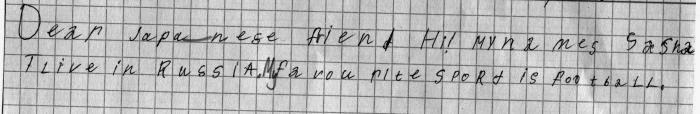 Dear Japanese friend Hi! My names Sasha
I Live in RussIA. My favourite SpoRt is footbaLL.